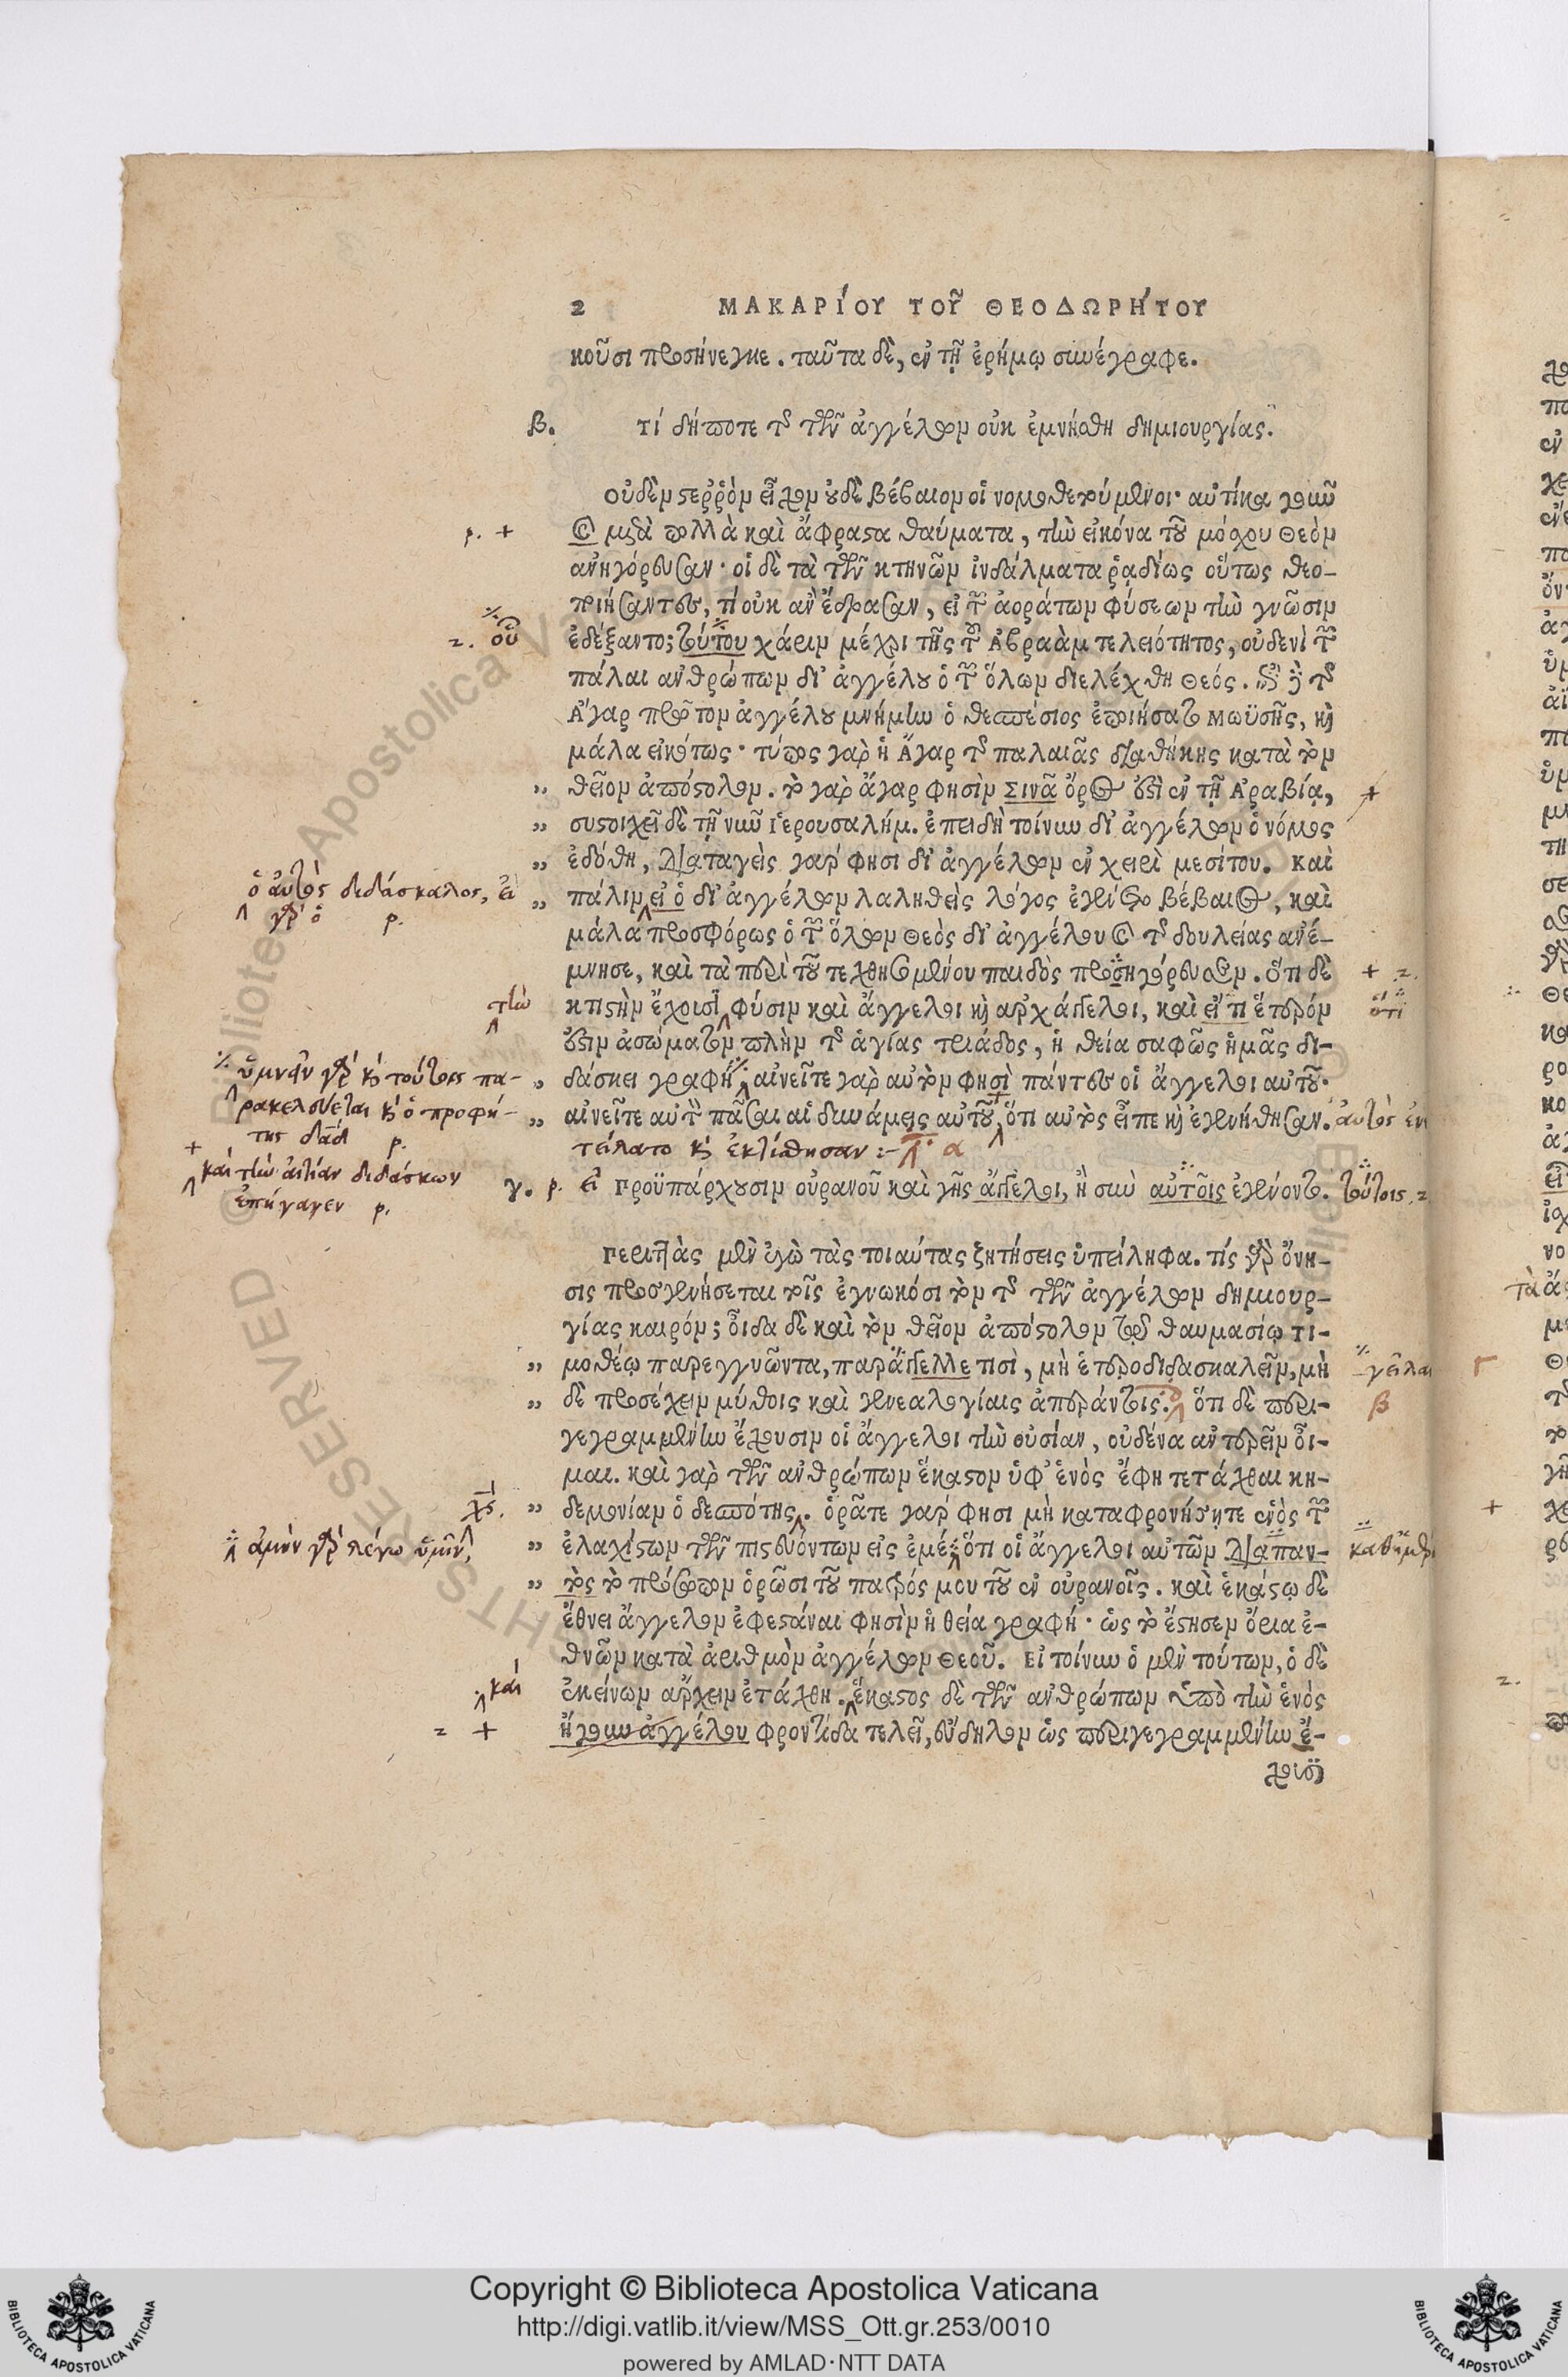 2 ΜΑΚΑΡΊΟΥ ΤΟΥ͂ ΘΕΟΔΩΡΉΤΟΥ
κοῦσι προσήνεγκε. ταῦτα δὲ, ἐν τῇ ἐρήμῳ συνέγραφε.
β. τί δήποτε τῆς τῶν ἀγγέλων οὐκ ἐμνήσθη δημιουργίας.
Οὐδὲν στερρὸν εἶχον οὐδὲ βέβαιον οἱ νομοθετούμενοι· αὐτίκα γοῦν
ρ. + μετὰ πολλὰ καὶ ἄφραστα θαύματα, τὴν εἰκόνα τοῦ μόσχου Θεὸν
ἀνηγόρευσαν· οἱ δὲ τὰ τῶν κτηνῶν ἰνδάλματα ῥαδίως οὕτως θεο-
ποιήσαντες, τί οὐκ ἂν ἔδρασαν, εἰ τῶν ἀοράτων φύσεων τὴν γνῶσιν
2. οὗ ἐδέξαντο; τούτου χάριν μέχρι τῆς τοῦ Ἀβραὰμ τελειότητος, οὐδενὶ τῶν
πάλαι ἀνθρώπων δι' ἀγγέλου ὁ τῶν ὅλων διελέχθη Θεός. ἐπὶ δὲ τῆς
Ἄγαρ πρῶτον ἀγγέλου μνήμην ὁ θεσπέσιος ἐποιήσατο Μωϋσῆς, καὶ
μάλα εἰκότως· τύπος γὰρ ἡ Ἄγαρ τῆς παλαιᾶς διαθήκης κατὰ τὸν
" θεῖον ἀπόστολον. τὸ γὰρ ἄγαρ φησὶν Σινᾶ ὄρος ἐστὶ ἐν τῇ Ἀραβίᾳ, +
" συστοιχεῖ δὲ τῇ νῦν Ἱερουσαλήμ. ἐπειδὴ τοίνυν δι' ἀγγέλων ὁ νόμος
" ἐδόθη, διαταγεὶς γάρ φησι δι' ἀγγέλων ἐν χειρὶ μεσίτου. καὶ
ὁ αὐτὸς διδάσκαλος, εἰ
γὰρ ὁ ρ.
" πάλιν εἰ ὁ δι' ἀγγέλων λαληθεὶς λόγος ἐγένετο βέβαιος, καὶ
μάλα προσφόρως ὁ τῶν ὅλων Θεὸς δι' ἀγγέλου καὶ τῆς δουλείας ἀνέ-
μνησε, καὶ τὰ περὶ τοῦ τεχθησομένου παιδὸς προσηγόρευσεν. ὅτι δὲ + 2.
τὴν κτιστὴν ἔχουσι φύσιν καὶ ἄγγελοι καὶ ἀρχάγγελοι, καὶ εἴ τι ἕτερόν ὅτι
ἐστιν ἀσώματον πλὴν τῆς ἁγίας τριάδος, ἡ θεία σαφῶς ἡμᾶς δι-
ὑμνεῖν γὰρ καὶ τούτοις πα-
ρακελεύεται καὶ ὁ προφή-
της δᾱδ ρ.
" δάσκει γραφή· αἰνεῖτε γὰρ αὐτὸν φησὶ πάντες οἱ ἄγγελοι αὐτοῦ·
" αἰνεῖτε αὐτὸν πᾶσαι αἱ δυνάμεις αὐτοῦ, ὅτι αὐτὸς εἶπε καὶ ἐγενήθησαν. αὐτὸς ἐν
τείλατο καὶ ἐκτίσθησαν :- α
+ καὶ τὴν αἰτίαν διδάσκων
ἐπήγαγεν ρ.
γ. ρ. εἰ Προϋπάρχουσιν οὐρανοῦ καὶ γῆς ἄγγελοι, ἢ σὺν αὐτοῖς ἐγένοντο. τούτοις. 2
Περιττὰς μὲν ἐγὼ τὰς τοιαύτας ζητήσεις ὑπείληφα. τίς γὰρ ὄνη-
σις προσγενήσεται τοῖς ἐγνωκόσι τὸν τῆς τῶν ἀγγέλων δημιουρ-
γίας καιρόν; οἶδα δὲ καὶ τὸν θεῖον ἀπόστολον τῷ θαυμασίῳ Τι-
" μοθέῳ παρεγγυῶντα, παράγγελλε τισὶ, μὴ ἑτεροδιδασκαλεῖν, μὴ -γεῖλαι
" δὲ προσέχειν μύθοις καὶ γενεαλογίαις ἀπεράντοις. ὅτι δὲ περι- β
γεγραμμένην ἔχουσιν οἱ ἄγγελοι τὴν οὐσίαν, οὐδένα ἀντερεῖν οἶ-
μαι. καὶ γὰρ τῶν ἀνθρώπων ἕκαστον ὑφ' ἑνὸς ἔφη τετάχθαι κη-
χς. " δεμονίαν ὁ δεσπότης. ὁρᾶτε γάρ φησι μὴ καταφρονήσητε ἑνὸς τῶν
ἀμὴν γὰρ λέγω ὑμῖν,
" ἐλαχίστων τῶν πιστευόντων εἰς ἐμέ· ὅτι οἱ ἄγγελοι αὐτῶν διαπαν-
" τὸς τὸ πρόσωπον ὁρῶσι τοῦ πατρός μου τοῦ ἐν οὐρανοῖς. καὶ ἑκάστῳ δὲ
ἔθνει ἄγγελον ἐφεστάναι φησὶν ἡ θεία γραφή· ὡς τὸ ἔστησεν ὅρια ἐ-
θνῶν κατὰ ἀριθμὸν ἀγγέλων Θεοῦ. Εἰ τοίνυν ὁ μὲν τούτων, ὁ δὲ
καὶ ἐκείνων ἄρχειν ἐτάχθη. ἕκαστος δὲ τῶν ἀνθρώπων ὑπὸ τὴν ἑνὸς
2 + ἤγουν ἀγγέλου φροντίδα τελεῖ, εὔδηλον ὡς περιγεγραμμένην ἔ-
χουσι
Copyright © Biblioteca Apostolica Vaticana
http://digi.vatlib.it/view/MSS_Ott.gr.253/0010
powered by AMLAD·NTT DATA